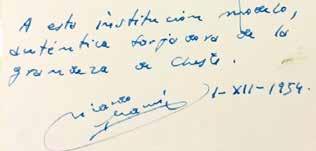 A esta institución modelo,
auténtica forjadora de la
grandeza de Cheste.
1-XII-1954.